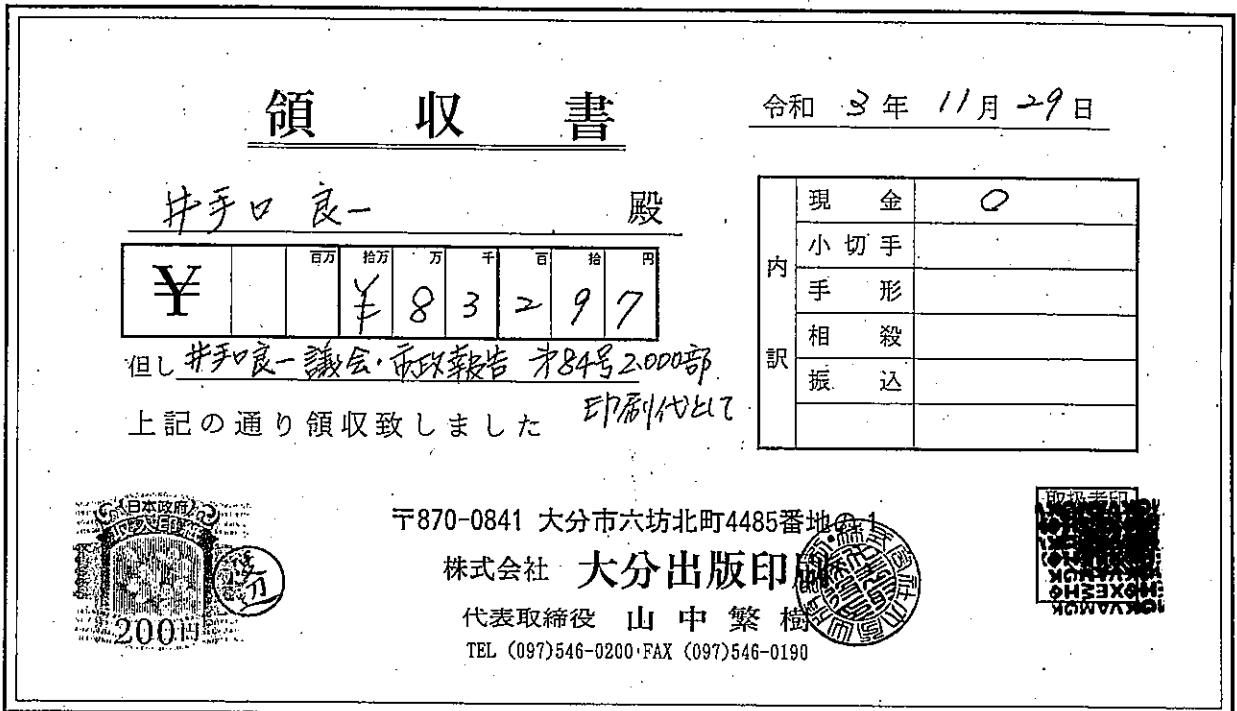 領収書
令和 3年 11月 29日
井手口 良一 殿
¥ 百万 拾万 万 千 百 拾 円
¥83297
但し 井手口良一 議会・市政報告 第84号2.000部
印刷代として
上記の通り領収致しました
内訳
現金 0
小切手
手形
相殺
振込
日本政府
200円
〒870-0841 大分市六坊北町4485番地の1
株式会社 大分出版印刷
代表取締役 山中繁樹
TEL (097)546-0200・FAX (097)546-0190
取扱者印